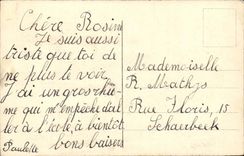 Chère Rosine
Je suis aussi
triste que toi de
ne plus le voir
J'ai un gros rhu-
me qui m'empêche d'al
ler à l'école, à bientôt
bons baisers
Paulette
Mademoiselle
R. Mathys
Rue Floris, 15
Schaerbeek